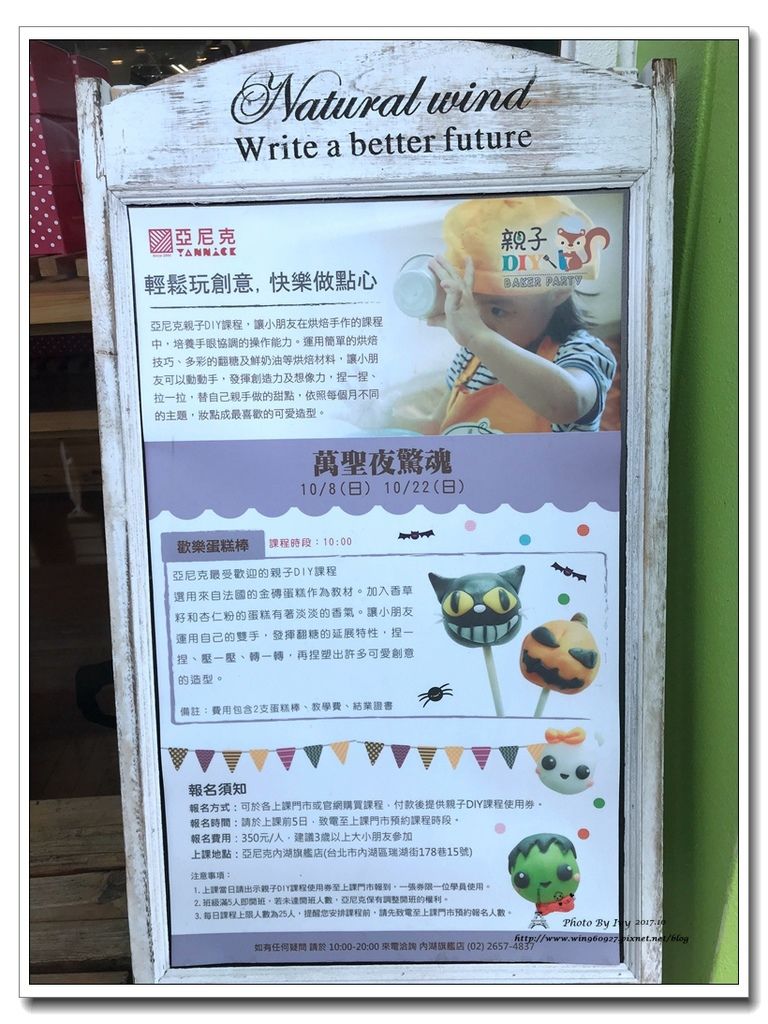 Natural wind
Write a better future
亞尼克
YANNICK
親子
DIY
BAKER PARTY
輕鬆玩創意, 快樂做點心
亞尼克親子DIY課程，讓小朋友在烘焙手作的課程
中，培養手眼協調的操作能力。運用簡單的烘焙
技巧、多彩的翻糖及鮮奶油等烘焙材料，讓小朋
友可以動動手，發揮創造力及想像力，捏一捏、
拉一拉，替自己親手做的甜點，依照每個月不同
的主題，妝點成最喜歡的可愛造型。
萬聖夜驚魂
10/8(日) 10/22(日)
歡樂蛋糕棒 課程時段：10:00
亞尼克最受歡迎的親子DIY課程
選用來自法國的金磚蛋糕作為教材。加入香草
籽和杏仁粉的蛋糕有著淡淡的香氣。讓小朋友
運用自己的雙手，發揮翻糖的延展特性，捏一
捏、壓一壓、轉一轉，再捏塑出許多可愛創意
的造型。
備註：費用包含2支蛋糕棒、教學費、結業證書
報名須知
報名方式：可於各上課門市或官網購買課程，付款後提供親子DIY課程使用券。
報名時間：請於上課前5日，致電至上課門市預約課程時段。
報名費用：350元/人，建議3歲以上大小朋友參加
上課地點：亞尼克內湖旗艦店(台北市內湖區瑞湖街178巷15號)
注意事項：
1.上課當日請出示親子DIY課程使用券至上課門市報到，一張券限一位學員使用。
2.班級滿5人即開班，若未達開班人數，亞尼克保有調整開班的權利。
3.每日課程上限人數為25人，提醒您安排課程前，請先致電至上課門市預約報名人數。
Photo By Ivy 2017.10
http://www.win960927.pixnet.net/blog
如有任何疑問 請於 10:00-20:00 來電洽詢 內湖旗艦店 (02) 2657-4837